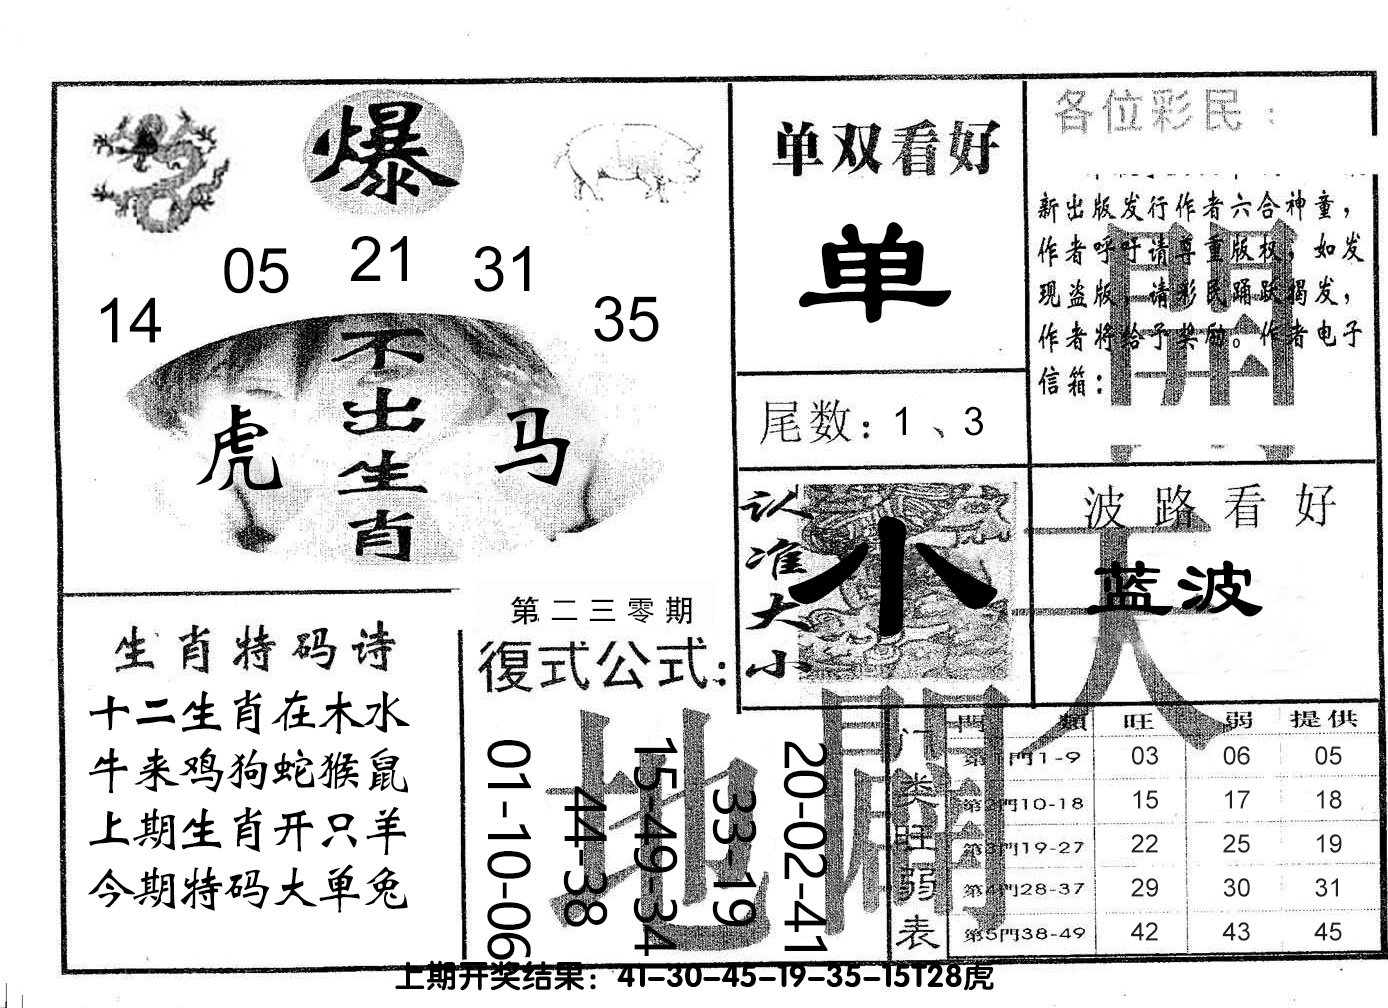 爆
14 05 21 31 35
不出生肖
虎 马
单双看好
单
尾数：1、3
各位彩民：
新出版发行作者六合神童，
作者呼吁请尊重版权，如发
现盗版，请彩民踊跃揭发，
作者将给予奖励。作者电子
信箱：
認准大小
小
波路看好
蓝波
天
開
地
闢
生肖特码诗
十二生肖在木水
牛来鸡狗蛇猴鼠
上期生肖开只羊
今期特码大单兔
第二三零期
復式公式：
01-10-06
44-38
15-49-34
33-19
20-02-41
门类旺弱表
門類 旺 弱 提供
第1門1-9 03 06 05
第2門10-18 15 17 18
第3門19-27 22 25 19
第4門28-37 29 30 31
第5門38-49 42 43 45
上期开奖结果：41-30-45-19-35-15T28虎